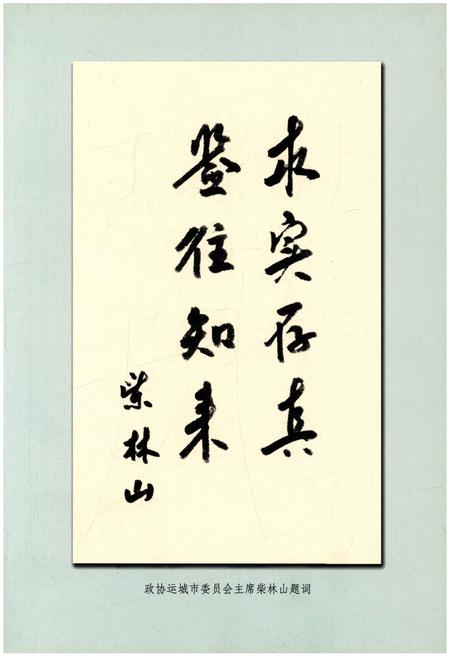 求实存真
鉴往知来
柴林山
政协运城市委员会主席柴林山题词